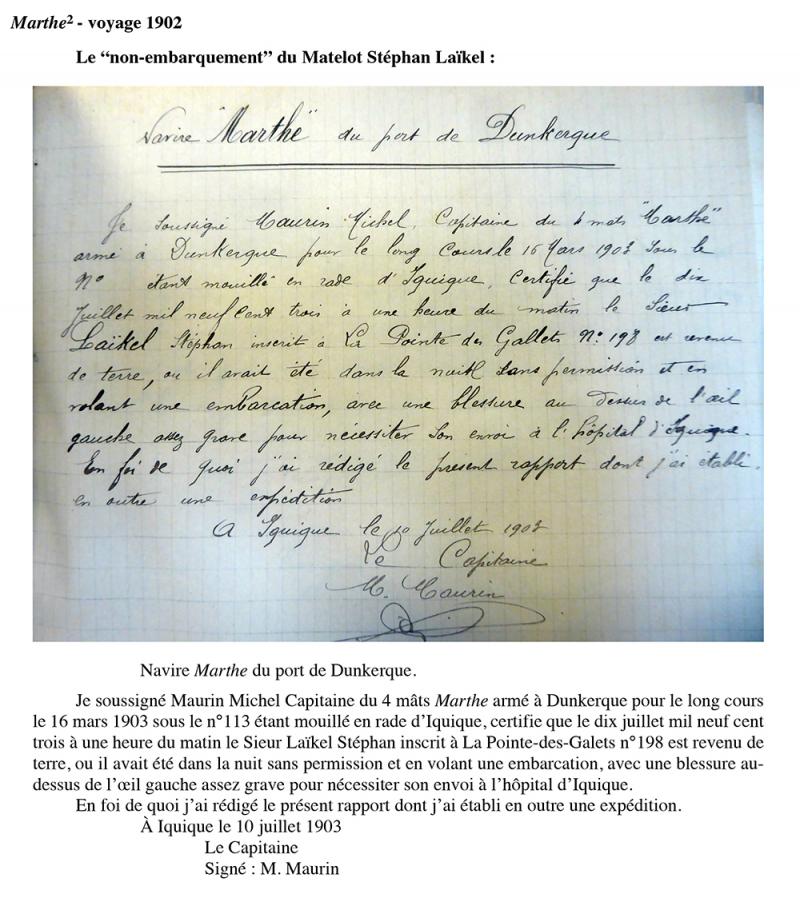 Marthe² - voyage 1902
Le “non-embarquement” du Matelot Stéphan Laïkel :
Navire "Marthe" du port de Dunkerque
Je soussigné Maurin Michel, Capitaine du 4 mats "Marthe"
armé à Dunkerque pour le long cours le 16 Mars 1903 sous le
N° étant mouillé en rade d'Iquique, Certifie que le dix
Juillet mil neuf cent trois à une heure du matin le Sieur
Laïkel Stéphan inscrit à La Pointe des Gallets N° 198 est revenu
de terre, ou il avait été dans la nuit sans permission et en
volant une embarcation, avec une blessure au dessus de l'œil
gauche assez grave pour nécessiter son envoi à l'hôpital d'Iquique.
En foi de quoi j'ai rédigé le présent rapport dont j'ai établi
en outre une expédition
A Iquique le 10 Juillet 1903
Le Capitaine
M. Maurin
Navire Marthe du port de Dunkerque.
Je soussigné Maurin Michel Capitaine du 4 mâts Marthe armé à Dunkerque pour le long cours
le 16 mars 1903 sous le n°113 étant mouillé en rade d’Iquique, certifie que le dix juillet mil neuf cent
trois à une heure du matin le Sieur Laïkel Stéphan inscrit à La Pointe-des-Galets n°198 est revenu de
terre, ou il avait été dans la nuit sans permission et en volant une embarcation, avec une blessure au-
dessus de l’œil gauche assez grave pour nécessiter son envoi à l’hôpital d’Iquique.
En foi de quoi j’ai rédigé le présent rapport dont j’ai établi en outre une expédition.
À Iquique le 10 juillet 1903
Le Capitaine
Signé : M. Maurin